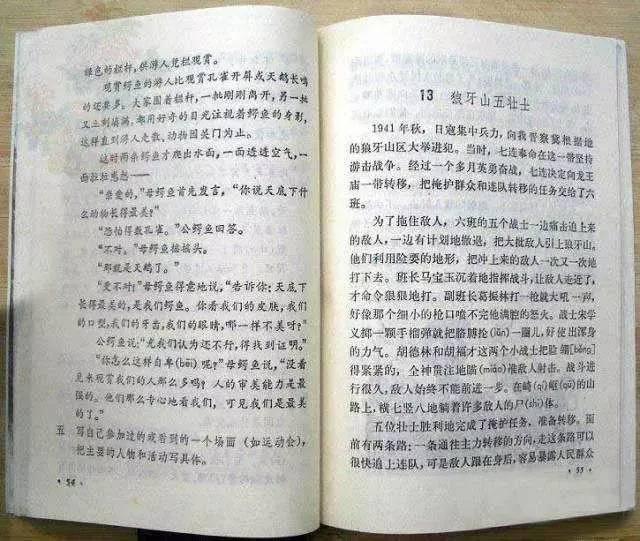 绿色的栏杆，供游人凭栏观赏。
观赏鳄鱼的游人比观赏孔雀开屏或天鹅长鸣
的还要多。大家围着栏杆，一批刚刚离开，另一批
又立刻填满，都用好奇的目光注视着鳄鱼的身影，
这样直到游人走散，动物园关门为止。
这时两条鳄鱼才爬出水面，一面透透空气，一
面拉拉家常——
“亲爱的，”母鳄鱼首先发言，“你说天底下什
么动物长得最美？”
“恐怕得数孔雀。”公鳄鱼回答。
“不对。”母鳄鱼摇摇头。
“那就是天鹅了。”
“更不对！”母鳄鱼得意地说，“告诉你：天底下
长得最美的，是我们鳄鱼。你看我们的皮肤，我们
的口型，我们的牙齿，我们的眼睛，哪一样不美呀？”
公鳄鱼说：“光我们认为还不行，得找到证明。”
“你怎么这样自卑（bēi）呢？”母鳄鱼说，“没看
见来观赏我们的人那么多吗？人的审美能力是最
强的。他们那么专心地看我们，可见我们是最美
的了。”
五 写自己参加过的或看到的一个场面（如运动会），
把主要的人物和活动写具体。
· 54 ·
13 狼牙山五壮士
1941年秋，日寇集中兵力，向我晋察冀根据地
的狼牙山区大举进犯。当时，七连奉命在这一带坚持
游击战争。经过一个多月英勇奋战，七连决定向龙王
庙一带转移，把掩护群众和连队转移的任务交给了六
班。
为了拖住敌人，六班的五个战士一边痛击追上来
的敌人，一边有计划地撤退，把大批敌人引上狼牙山。
他们利用险要的地形，把冲上来的敌人一次又一次地
打下去。班长马宝玉沉着地指挥战斗，让敌人走近了，
才命令狠狠地打。副班长葛振林打一枪就大吼一声，
好像那个细小的枪口喷不完他满腔的怒火。战士宋学
义掷一颗手榴弹就把胳膊抡（lūn）一圈儿，好使出浑身
的力气。胡德林和胡福才这两个小战士把脸绷[běng]
得紧紧的，全神贯注地瞄（miáo）准敌人射击。战斗进
行很久，敌人始终不能前进一步。在崎（qí）岖（qū）的山
路上，横七竖八地躺着许多敌人的尸（shī）体。
五位壮士胜利地完成了掩护任务，准备转移。面
前有两条路：一条通往主力转移的方向，走这条路可以
很快追上连队，可是敌人跟在身后，容易暴露人民群众
· 55 ·